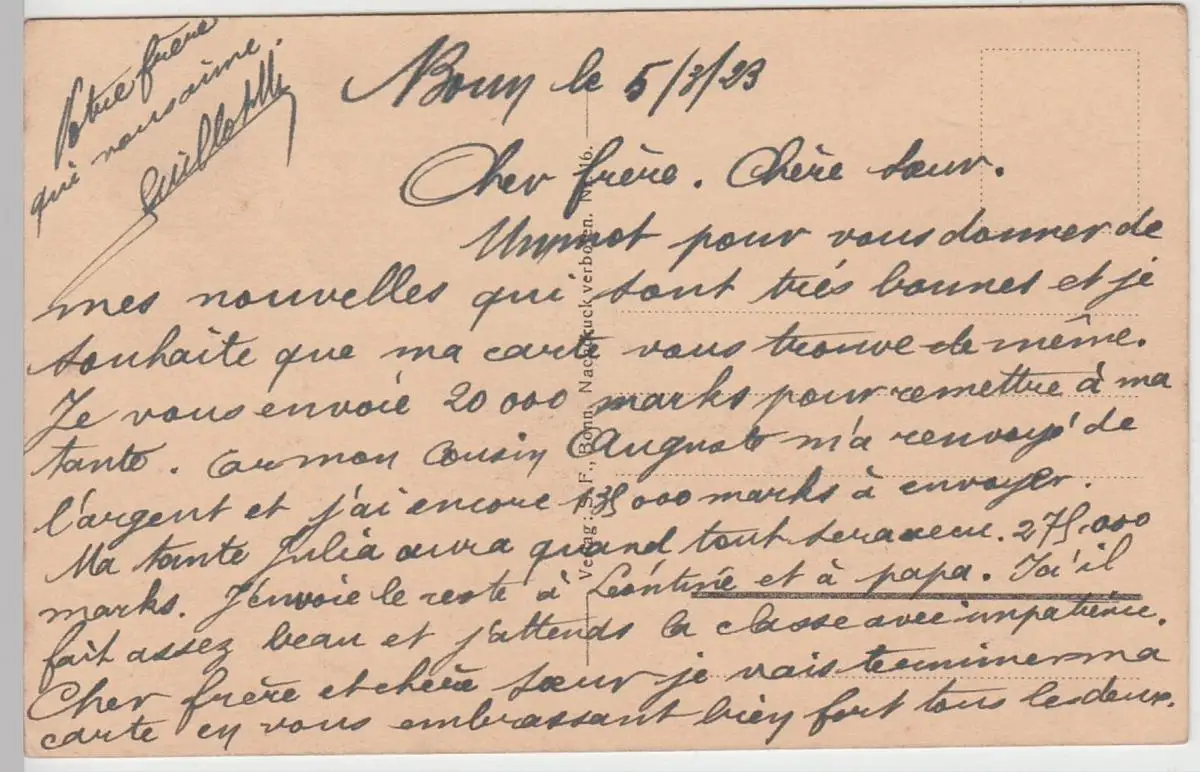 Bonn le 5/3/23
Cher frère. Chère sœur.
Un mot pour vous donner de
mes nouvelles qui sont très bonnes et je
souhaite que ma carte vous trouve de même.
Je vous envoie 20 000 marks pour remettre à ma
tante. car mon cousin Auguste m'a renvoyé de
l'argent et j'ai encore 135 000 marks à envoyer.
Ma tante Julia aura quand tout sera 275.000
marks. J'envoie le reste à Léontine et à papa. Ici il
fait assez beau et j'attends la classe avec impatience.
Cher frère et chère sœur je vais terminer ma
carte en vous embrassant bien fort tous les deux.
Votre frère
qui vous aime.
Verlag: S. F., Bonn. Nachdruck verboten. Nr. 16.